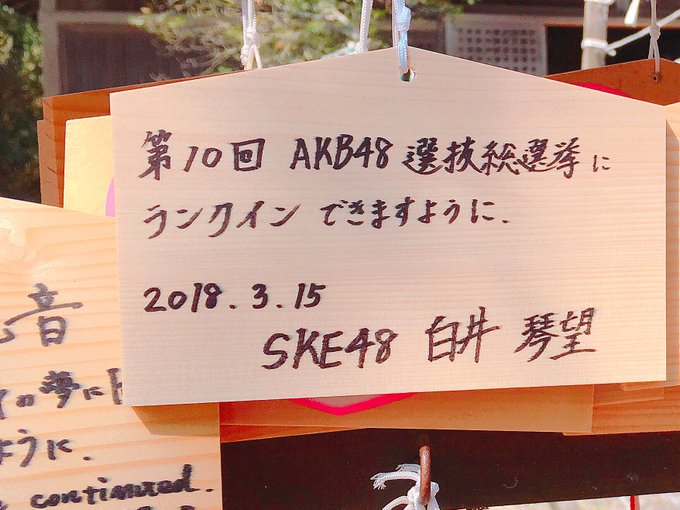 第10回 AKB48 選抜総選挙に
ランクインできますように.
2018.3.15
SKE48 白井 琴望
音
の夢に
ように.
continued.